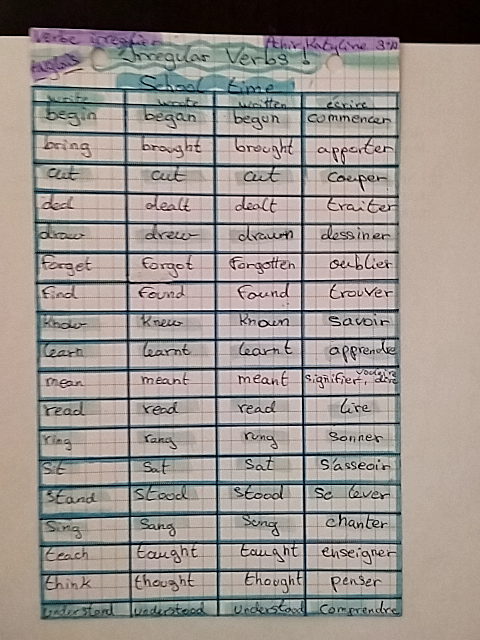 Verbe irrégulier Athir, Katyline 3°
Anglais
Irregular Verbs!
School time
write wrote written écrire
begin began begun commencer
bring brought brought apporter
cut cut cut couper
deal dealt dealt traiter
draw drew drawn dessiner
forget forgot forgotten oublier
find found found trouver
know knew known savoir
learn learnt learnt apprendre
mean meant meant signifier, vouloir dire
read read read lire
ring rang rung sonner
sit sat sat s'asseoir
stand stood stood se lever
sing sang sung chanter
teach taught taught enseigner
think thought thought penser
understand understood understood comprendre